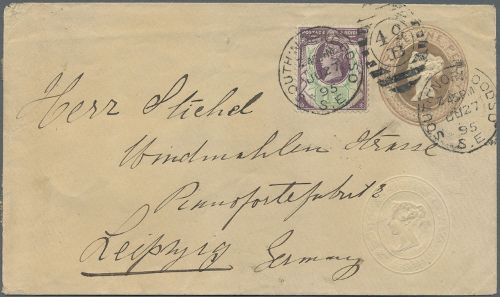 POSTAGE & REVENUE
ONE PENNY
48
B
SOUTH NORWOOD
JU 27
95
S.E.
SOUTH NORWOOD
2 45 PM
JU 27
95
S.E.
Herr Stichel
Windmahlen Strasse
Pianofortefabrik
Leipzig Germany